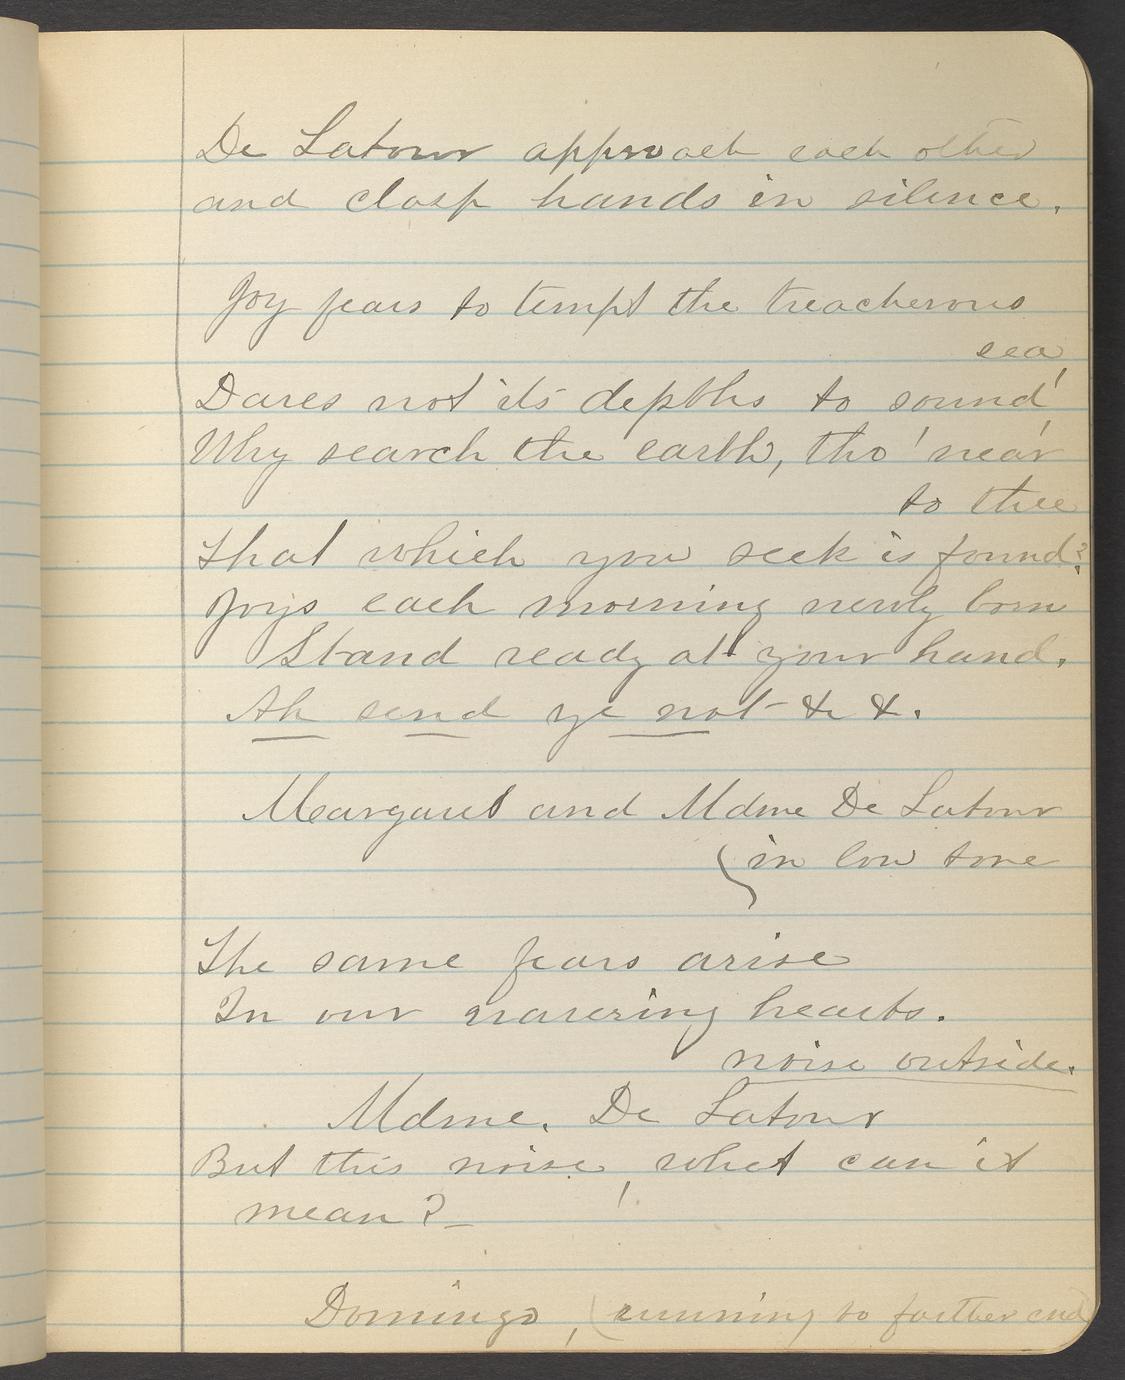 De Latour approach each other
and clasp hands in silence.
Joy fears to tempt the treacherous
sea,
Dares not its depths to sound'
Why search the earth, tho' near
to thee
That which you seek is found?
Joys each morning newly born
Stand ready at your hand.
Ah send ye not & &.
Margaret and Mdme De Latour
(in low tone
The same fears arise
In our wavering hearts.
noise outside.
Mdme. De Latour
But this noise, what can it
mean?
Domingo, (running to farther end